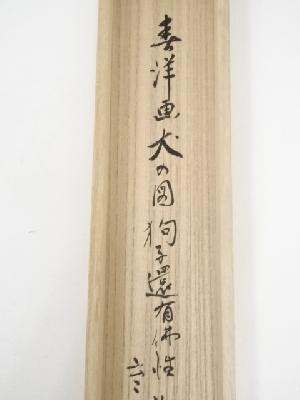 春洋画犬の図狗子還有佛性
云々